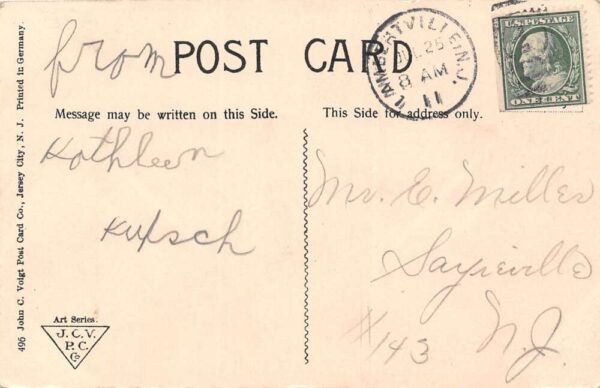 from
POST CARD
LAMBERTVILLE, N.J.
JUL 26
8 AM
11
U.S. POSTAGE
ONE CENT
Message may be written on this Side.
This Side for address only.
Kathleen
Kupsch
Mr. E. Miller
Sayreville
#143
N.J.
Art Series.
J. C. V.
P. C.
Co
496 John C. Voigt Post Card Co., Jersey City, N. J. Printed in Germany.